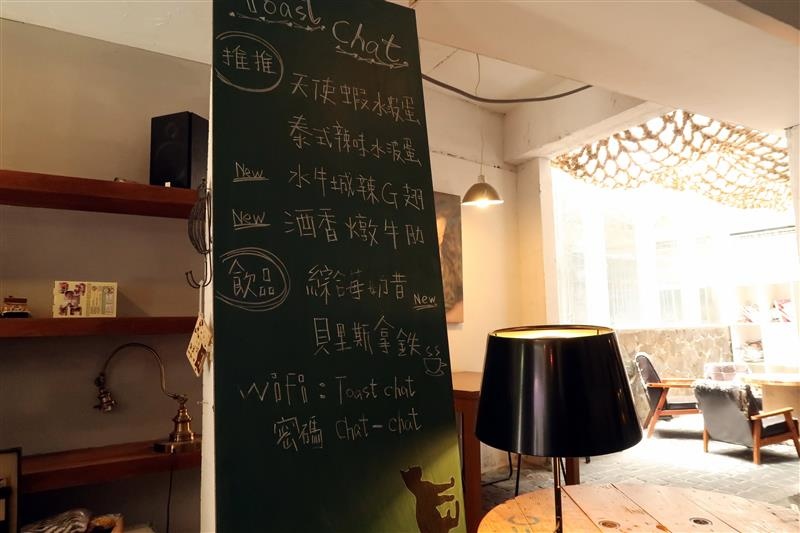 Toast
chat
推推
天使蝦水波蛋
泰式辣味水波蛋
New 水牛城辣G翅
New 酒香燉牛肋
飲品
綜合莓奶昔 New
貝里斯拿鐵
WiFi : Toast chat
密碼 chat-chat